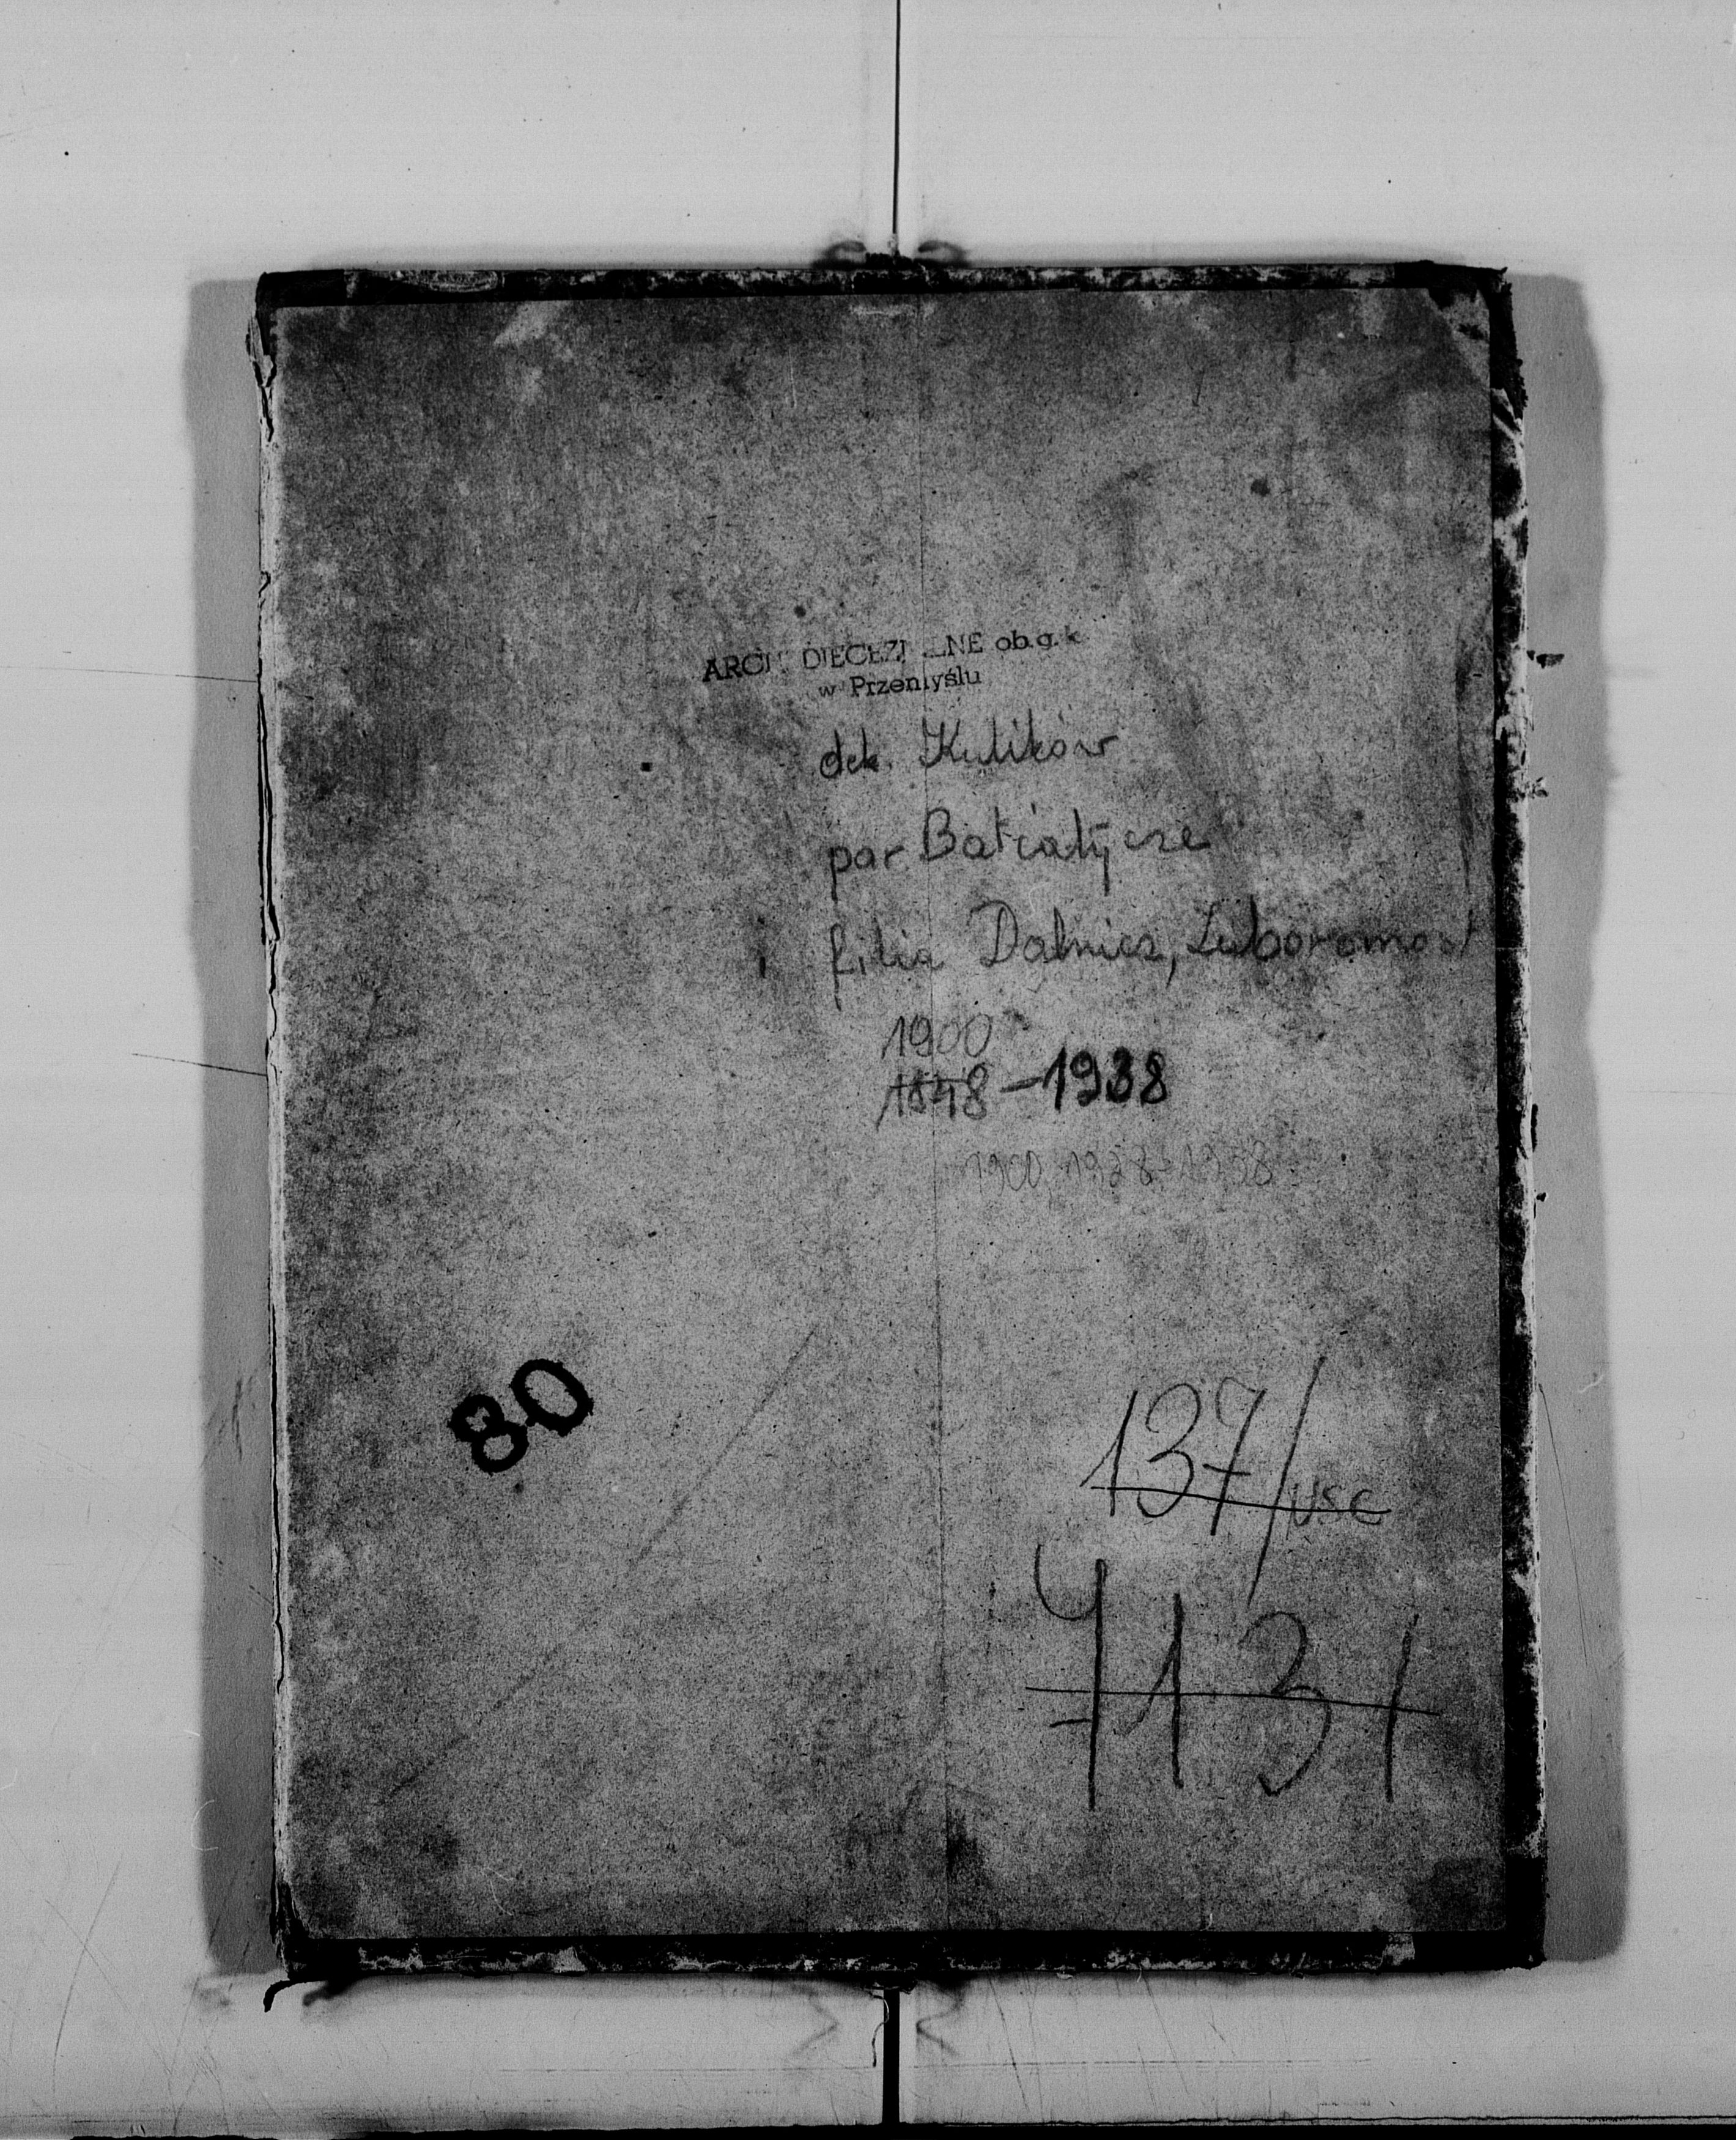 ARCH DIECEZJ LNE ob.g.k
w Przemyślu
dek. Kulików
par Batiatycze
i filia Dalnicz, Zuboromost
1900
1848 – 1938
1900, 1938-1938
80
137/usc
7131